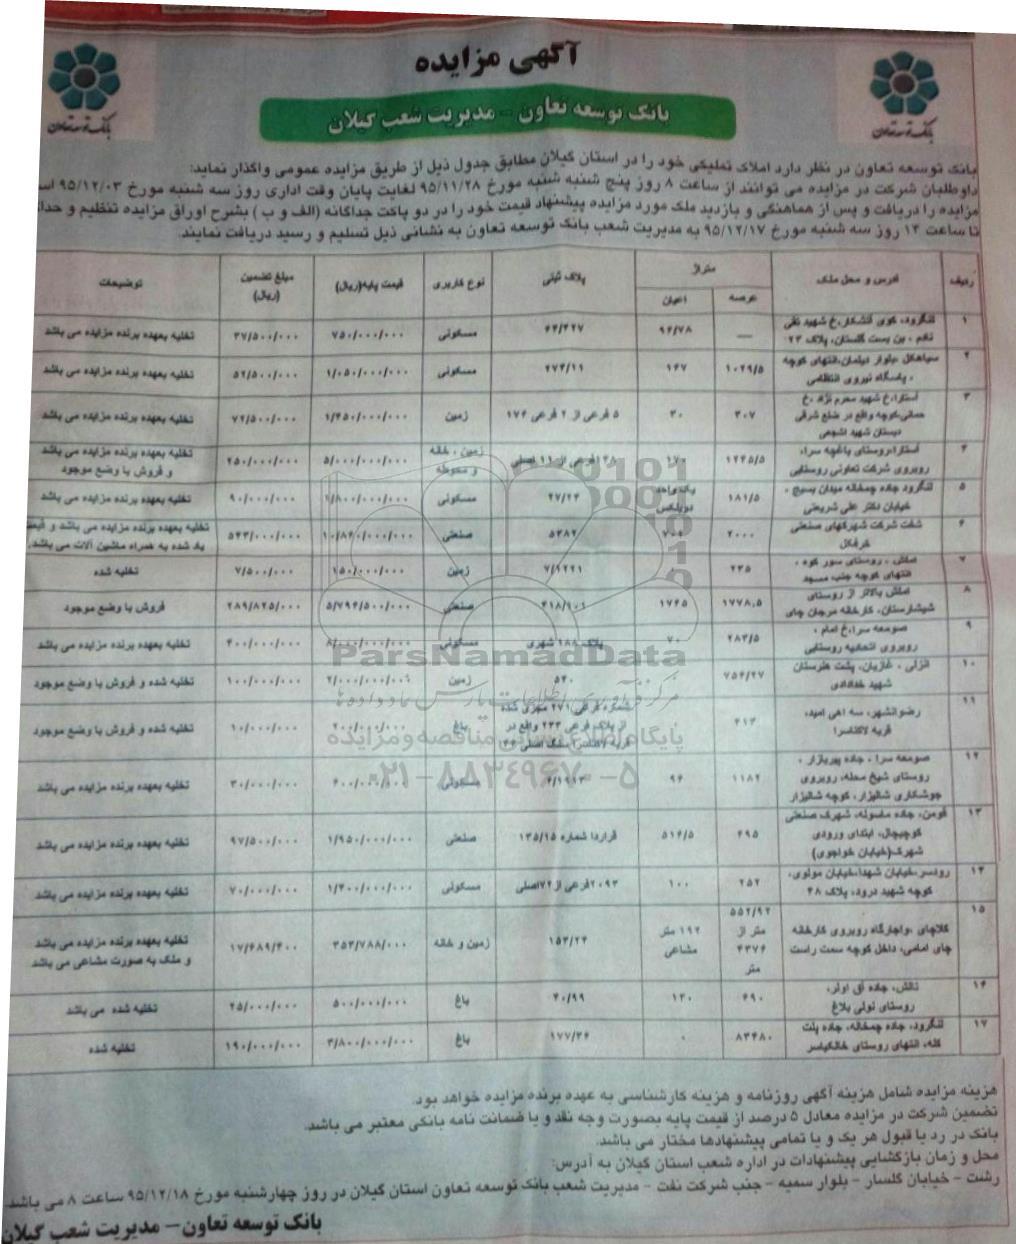 آگهی مزایده
بانک توسعه تعاون
بانک توسعه تعاون
بانک توسعه تعاون - مدیریت شعب گیلان
بانک توسعه تعاون در نظر دارد املاک تملیکی خود را در استان گیلان مطابق جدول ذیل از طریق مزایده عمومی واگذار نماید:
داوطلبان شرکت در مزایده می توانند از ساعت ۸ روز پنج شنبه شنبه مورخ ۹۵/۱۱/۲۸ لغایت پایان وقت اداری روز سه شنبه مورخ ۹۵/۱۲/۰۳
مزایده را دریافت و پس از هماهنگی و بازدید ملک مورد مزایده پیشنهاد قیمت خود را در دو پاکت جداگانه (الف و ب) بشرح اوراق مزایده تنظیم و حداکثر
تا ساعت ۱۳ روز سه شنبه مورخ ۹۵/۱۲/۱۷ به مدیریت شعب بانک توسعه تعاون به نشانی ذیل تسلیم و رسید دریافت نمایند.
ردیف آدرس و محل ملک متراژ عرصه اعیان پلاک ثبتی نوع کاربری قیمت پایه(ریال) مبلغ تضمین (ریال) توضیحات
۱ لنگرود، کوی ،خ شهید تقی ، بن بست گلستان، پلاک ۲۳ — ۹۴/۷۸ مسکونی ۷۵۰/۰۰۰/۰۰۰ ۳۷/۵۰۰/۰۰۰ تخلیه بعهده برنده مزایده می باشد
۲ سیاهکل ،بلوار دیلمان،انتهای کوچه ، پاسگاه نیروی انتظامی ۱۰۲۹/۵ ۱۴۷ ۲۷۴/۱۱ مسکونی ۱/۰۵۰/۰۰۰/۰۰۰ ۵۲/۵۰۰/۰۰۰ تخلیه بعهده برنده مزایده می باشد
۳ آستارا،خ شهید محرم نژاد ،خ کوچه واقع در ضلع شرقی دبستان شهید ۳۰۷ ۳۰ ۵ فرعی از ۲ فرعی ۱۷۴ زمین ۱/۴۵۰/۰۰۰/۰۰۰ ۷۲/۵۰۰/۰۰۰ تخلیه بعهده برنده مزایده می باشد
۴ آستارا،روستای باغچه سرا، روبروی شرکت تعاونی روستایی ۱۲۴۵/۵ ۱۷۰ فرعی از ۱۱ اصلی زمین ، خانه و محوطه ۵/۰۰۰/۰۰۰/۰۰۰ ۲۵۰/۰۰۰/۰۰۰ تخلیه بعهده برنده مزایده می باشد و فروش با وضع موجود
۵ لنگرود جاده چمخاله میدان بسیج ، خیابان دکتر علی شریعتی ۱۸۱/۵ یک واحد دوبلکس ۲۷/۲۴ مسکونی ۱/۸۰۰/۰۰۰/۰۰۰ ۹۰/۰۰۰/۰۰۰ تخلیه بعهده برنده مزایده می باشد
۶ شفت شرکت شهرکهای صنعتی ۲۰۰۰ ۷۰۰ ۵۳۸۲ صنعتی ۱۰/۸۴۰/۰۰۰/۰۰۰ ۵۴۳/۰۰۰/۰۰۰ تخلیه بعهده برنده مزایده می باشد و قیمت یاد شده به همراه ماشین آلات می باشد.
۷ املش ، روستای سور کوه ، انتهای کوچه جنب مسجد ۲۳۵ ۰ ۷/۱۲۲۱ زمین ۱۵۰/۰۰۰/۰۰۰ ۷/۵۰۰/۰۰۰ تخلیه شده
۸ املش بالاتر از روستای شیشارستان، کارخانه مرجان چای ۱۷۷۸,۵ ۱۷۴۵ ۴۱۸/۱۰۱ صنعتی ۵/۷۹۶/۵۰۰/۰۰۰ ۲۸۹/۸۲۵/۰۰۰ فروش با وضع موجود
۹ صومعه سرا،خ امام ، روبروی اتحادیه روستایی ۲۸۳/۵ ۷۰ پلاک ۱۸۸ شهری مسکونی ۸/۰۰۰/۰۰۰/۰۰۰ ۴۰۰/۰۰۰/۰۰۰ تخلیه بعهده برنده مزایده می باشد
۱۰ انزلی ، غازیان، پشت هنرستان شهید خدادادی ۷۵۴/۲۷ ۵۳۰ زمین ۲/۰۰۰/۰۰۰/۰۰۰ ۱۰۰/۰۰۰/۰۰۰ تخلیه شده و فروش با وضع موجود
۱۱ رضوانشهر، سه اهی امید، قریه لاکتاسرا ۴۱۳ شماره فرعی ۲۷۱ مجزی شده از پلاک فرعی ۲۳۳ واقع در قریه لاکتاسرا سنگ اصلی ۲۴ باغ ۲۰۰/۰۰۰/۰۰۰ ۱۰/۰۰۰/۰۰۰ تخلیه شده و فروش با وضع موجود
۱۲ صومعه سرا ، جاده پیربازار ، روستای شیخ محله، روبروی جوشکاری شالیزار، کوچه شالیزار ۱۱۸۲ ۹۴ ۴/۱۹۱۳ مسکونی ۶۰۰/۰۰۰/۰۰۰ ۳۰/۰۰۰/۰۰۰ تخلیه بعهده برنده مزایده می باشد
۱۳ فومن، جاده ماسوله، شهرک صنعتی کوچیچال، ابتدای ورودی شهرک(خیابان خواجوی) ۴۹۵ ۵۱۴/۵ قراردا شماره ۱۳۵/۱۵ صنعتی ۱/۹۵۰/۰۰۰/۰۰۰ ۹۷/۵۰۰/۰۰۰ تخلیه بعهده برنده مزایده می باشد
۱۴ رودسر،خیابان شهدا،خیابان مولوی، کوچه شهید درود، پلاک ۴۸ ۲۵۲ ۱۰۰ ۲۰۹۳فرعی از۷۲اصلی مسکونی ۱/۴۰۰/۰۰۰/۰۰۰ ۷۰/۰۰۰/۰۰۰ تخلیه بعهده برنده مزایده می باشد
۱۵ کلاچای ،واجارگاه روبروی کارخانه چای امامی، داخل کوچه سمت راست ۵۵۲/۹۲ متر از ۴۳۷۶ متر ۱۹۲ متر مشاعی ۱۵۳/۲۴ زمین و خانه ۳۵۳/۷۸۸/۰۰۰ ۱۷/۶۸۹/۴۰۰ تخلیه بعهده برنده مزایده می باشد و ملک به صورت مشاعی می باشد
۱۶ تالش، جاده آق اولر، روستای تولی بلاغ ۶۹۰ ۱۳۰ ۴۰/۹۹ باغ ۵۰۰/۰۰۰/۰۰۰ ۲۵/۰۰۰/۰۰۰ تخلیه شده می باشد
۱۷ لنگرود، جاده چمخاله، جاده پلت کله، انتهای روستای خالکیاسر ۸۳۴۸۰ ۰ ۱۷۷/۳۶ باغ ۳/۸۰۰/۰۰۰/۰۰۰ ۱۹۰/۰۰۰/۰۰۰ تخلیه شده
ParsNamadData
مرکز فرآوری اطلاعات پارس نماد داده ها
پایگاه اطلاع رسانی مناقصه و مزایده
۰۲۱-۸۸۳۴۹۶۷۰-۵
هزینه مزایده شامل هزینه آگهی روزنامه و هزینه کارشناسی به عهده برنده مزایده خواهد بود.
تضمین شرکت در مزایده معادل ۵ درصد از قیمت پایه بصورت وجه نقد و یا ضمانت نامه بانکی معتبر می باشد.
بانک در رد یا قبول هر یک و یا تمامی پیشنهادها مختار می باشد.
محل و زمان بازگشایی پیشنهادات در اداره شعب استان گیلان به آدرس:
رشت - خیابان گلسار - بلوار سمیه - جنب شرکت نفت - مدیریت شعب بانک توسعه تعاون استان گیلان در روز چهارشنبه مورخ ۹۵/۱۲/۱۸ ساعت ۸ می باشد
بانک توسعه تعاون- مدیریت شعب گیلان